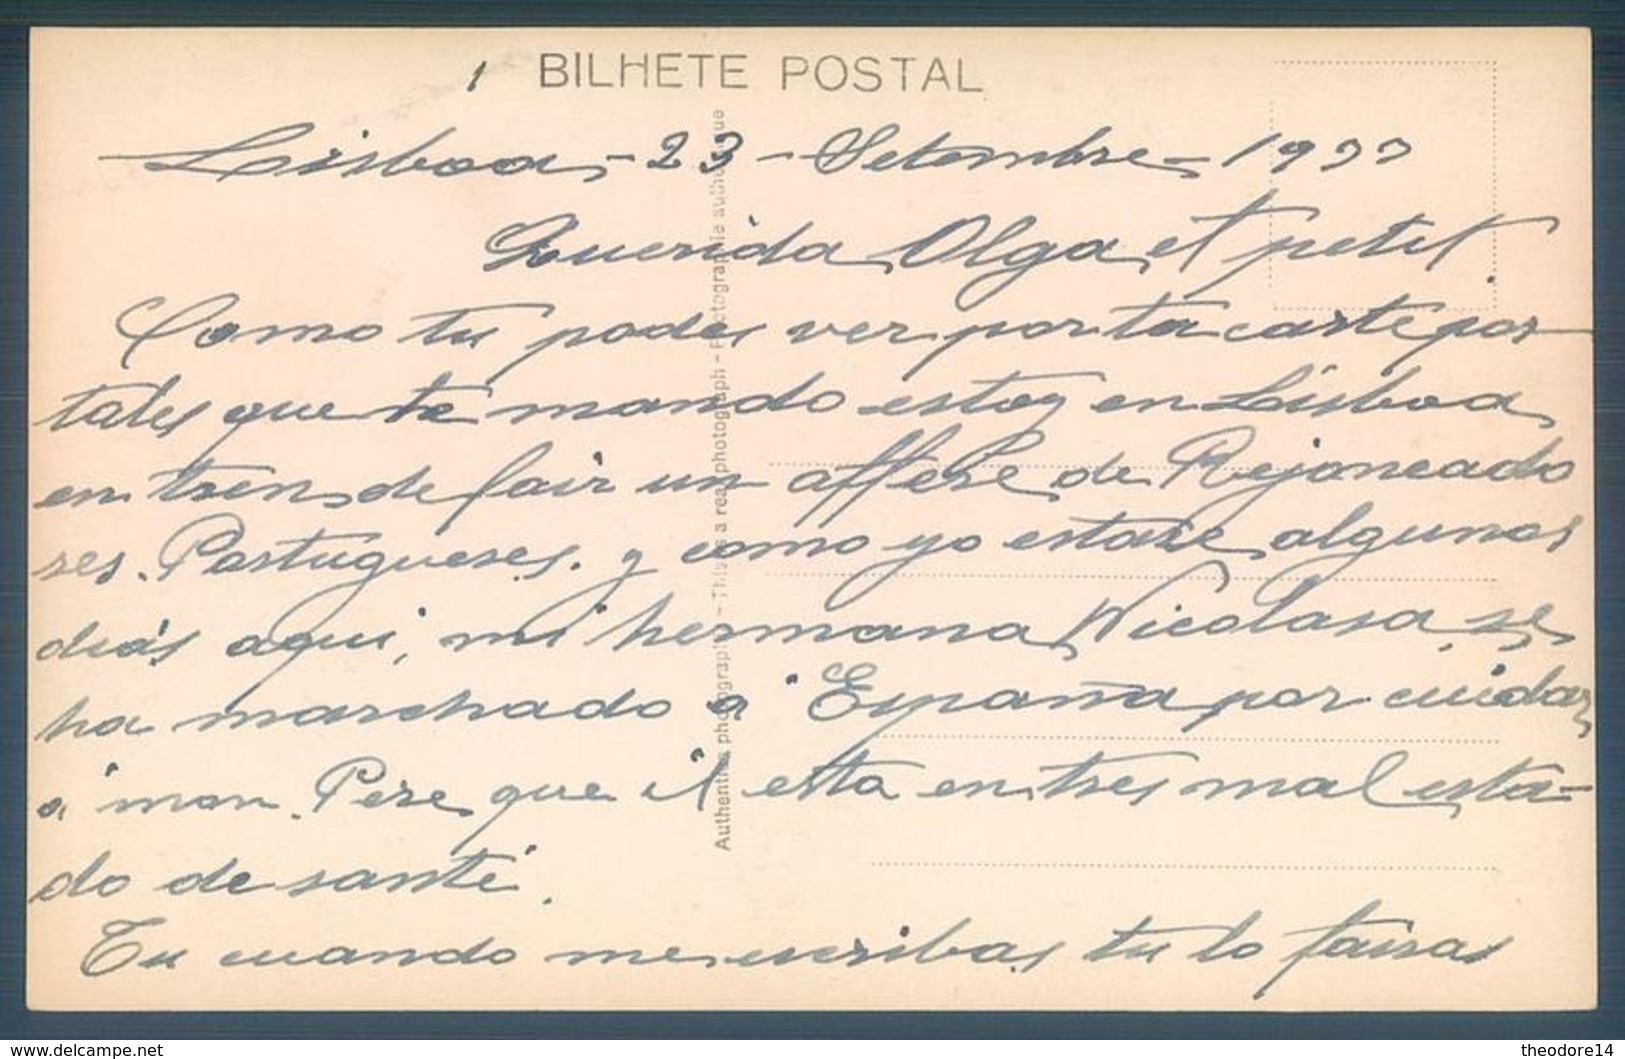 1 BILHETE POSTAL
Lisboa - 23 - Setembre - 1933
Querida Olga et petit.
Como tu podes ver por ta carte pos-
tales que te mando estoy en Lisboa
en tren de fair un affere de Rejoneado
res. Portugueses. y como yo estare algunos
dias aqui, mi hermana Nicolasa, se
ha marchado a España por cuidar
a mon. Pere que il esta en tres mal esta-
do de santé.
Tu cuando me escribas tu lo fairas
Authentha photograph - This is a real photograph - Fotographie authentique
theodore14
www.delcampe.net